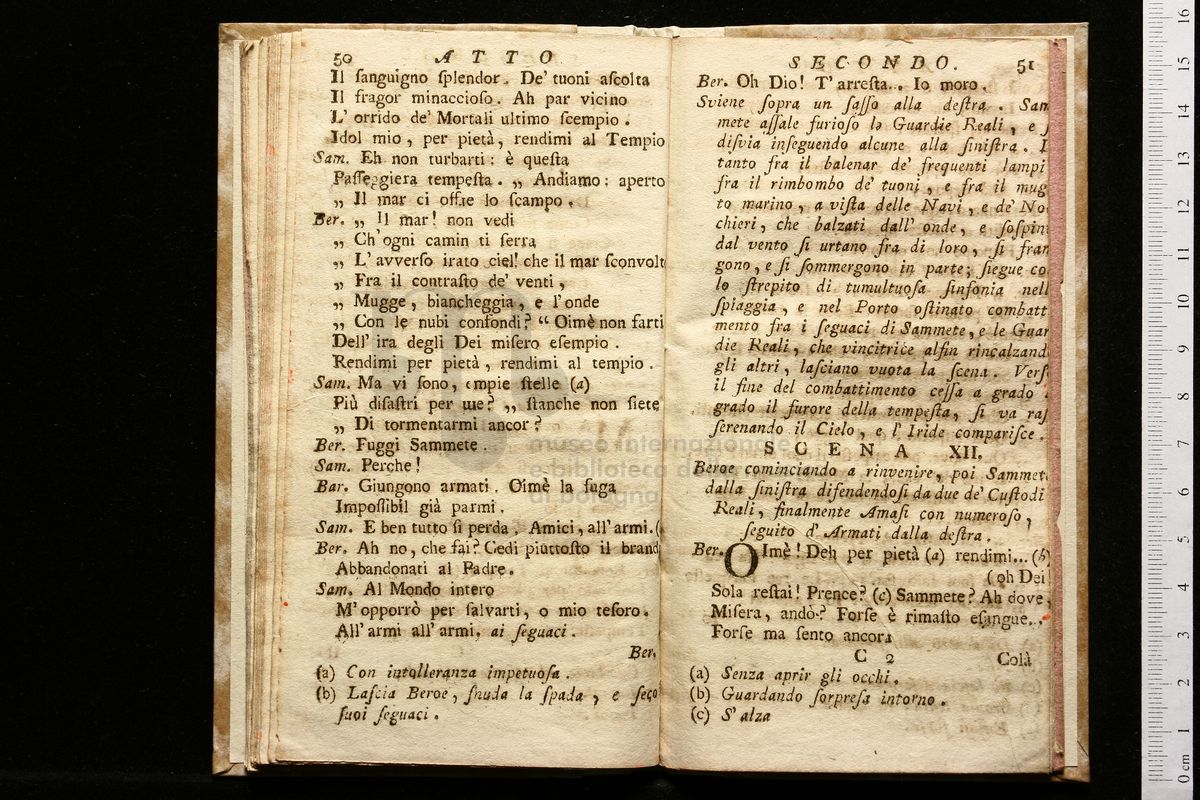 50 ATTO
Il ſanguigno ſplendor. De' tuoni aſcolta
Il fragor minaccioſo. Ah par vicino
L' orrido de' Mortali ultimo ſcempio.
Idol mio, per pietà, rendimi al Tempio
Sam. Eh non turbarti: è queſta
Paſſeggiera tempeſta. „ Andiamo: aperto
„ Il mar ci offre lo ſcampo,
Ber. „ Il mar! non vedi
„ Ch'ogni camin ti ſerra
„ L'avverſo irato ciel! che il mar ſconvolt
„ Fra il contraſto de' venti,
„ Mugge, biancheggia, e l'onde
„ Con le nubi confondi? “ Oimè non farti
Dell' ira degli Dei miſero eſempio.
Rendimi per pietà, rendimi al tempio.
Sam. Ma vi ſono, empie ſtelle (a)
Più diſaſtri per me? „ ſtanche non ſiete
„ Di tormentarmi ancor?
Ber. Fuggi Sammete.
Sam. Perche!
Bar. Giungono armati. Oimè la fuga
Impoſſibil già parmi.
Sam. E ben tutto ſi perda. Amici, all'armi. (
Ber. Ah no, che fai? Cedi piùttoſto il brand
Abbandonati al Padre.
Sam. Al Mondo intero
M'opporrò per ſalvarti, o mio teſoro.
All'armi all'armi. ai ſeguaci.
Ber.
(a) Con intolleranza impetuoſa.
(b) Laſcia Beroe, ſnuda la ſpada, e ſeco
ſuoi ſeguaci.
SECONDO. 51
Ber. Oh Dio! T'arreſta... Io moro.
Sviene ſopra un ſaſſo alla deſtra. Sam
mete aſſale furioſo le Guardie Reali, e ſ
diſvia inſeguendo alcune alla ſiniſtra. I
tanto fra il balenar de' frequenti lampi
fra il rimbombo de' tuoni, e fra il mug
to marino, a viſta delle Navi, e de' No
chieri, che balzati dall' onde, e ſoſpin
dal vento ſi urtano fra di loro, ſi fran
gono, e ſi ſommergono in parte; ſiegue co
lo ſtrepito di tumultuoſa ſinfonia nell
ſpiaggia, e nel Porto oſtinato combatt
mento fra i ſeguaci di Sammete, e le Guar
die Reali, che vincitrice alfin rincalzand
gli altri, laſciano vuota la ſcena. Verſ
il fine del combattimento ceſſa a grado
grado il furore della tempeſta, ſi va raſ
ſerenando il Cielo, e l' Iride compariſce.
SCENA XII.
Beroe cominciando a rinvenire, poi Sammet
dalla ſiniſtra difendendoſi da due de' Cuſtodi
Reali, finalmente Amaſi con numeroſo,
ſeguito d' Armati dalla deſtra.
Ber. OImè! Deh per pietà (a) rendimi... (b)
(oh Dei
Sola reſtai! Prence? (c) Sammete? Ah dove,
Miſera, andò? Forſe è rimaſto eſangue...
Forſe ma ſento ancora
C 2 Colà
(a) Senza aprir gli occhi.
(b) Guardando ſorpreſa intorno.
(c) S'alza
museo internazionale
e biblioteca d
di bologna
0 cm 1 2 3 4 5 6 7 8 9 10 11 12 13 14 15 16